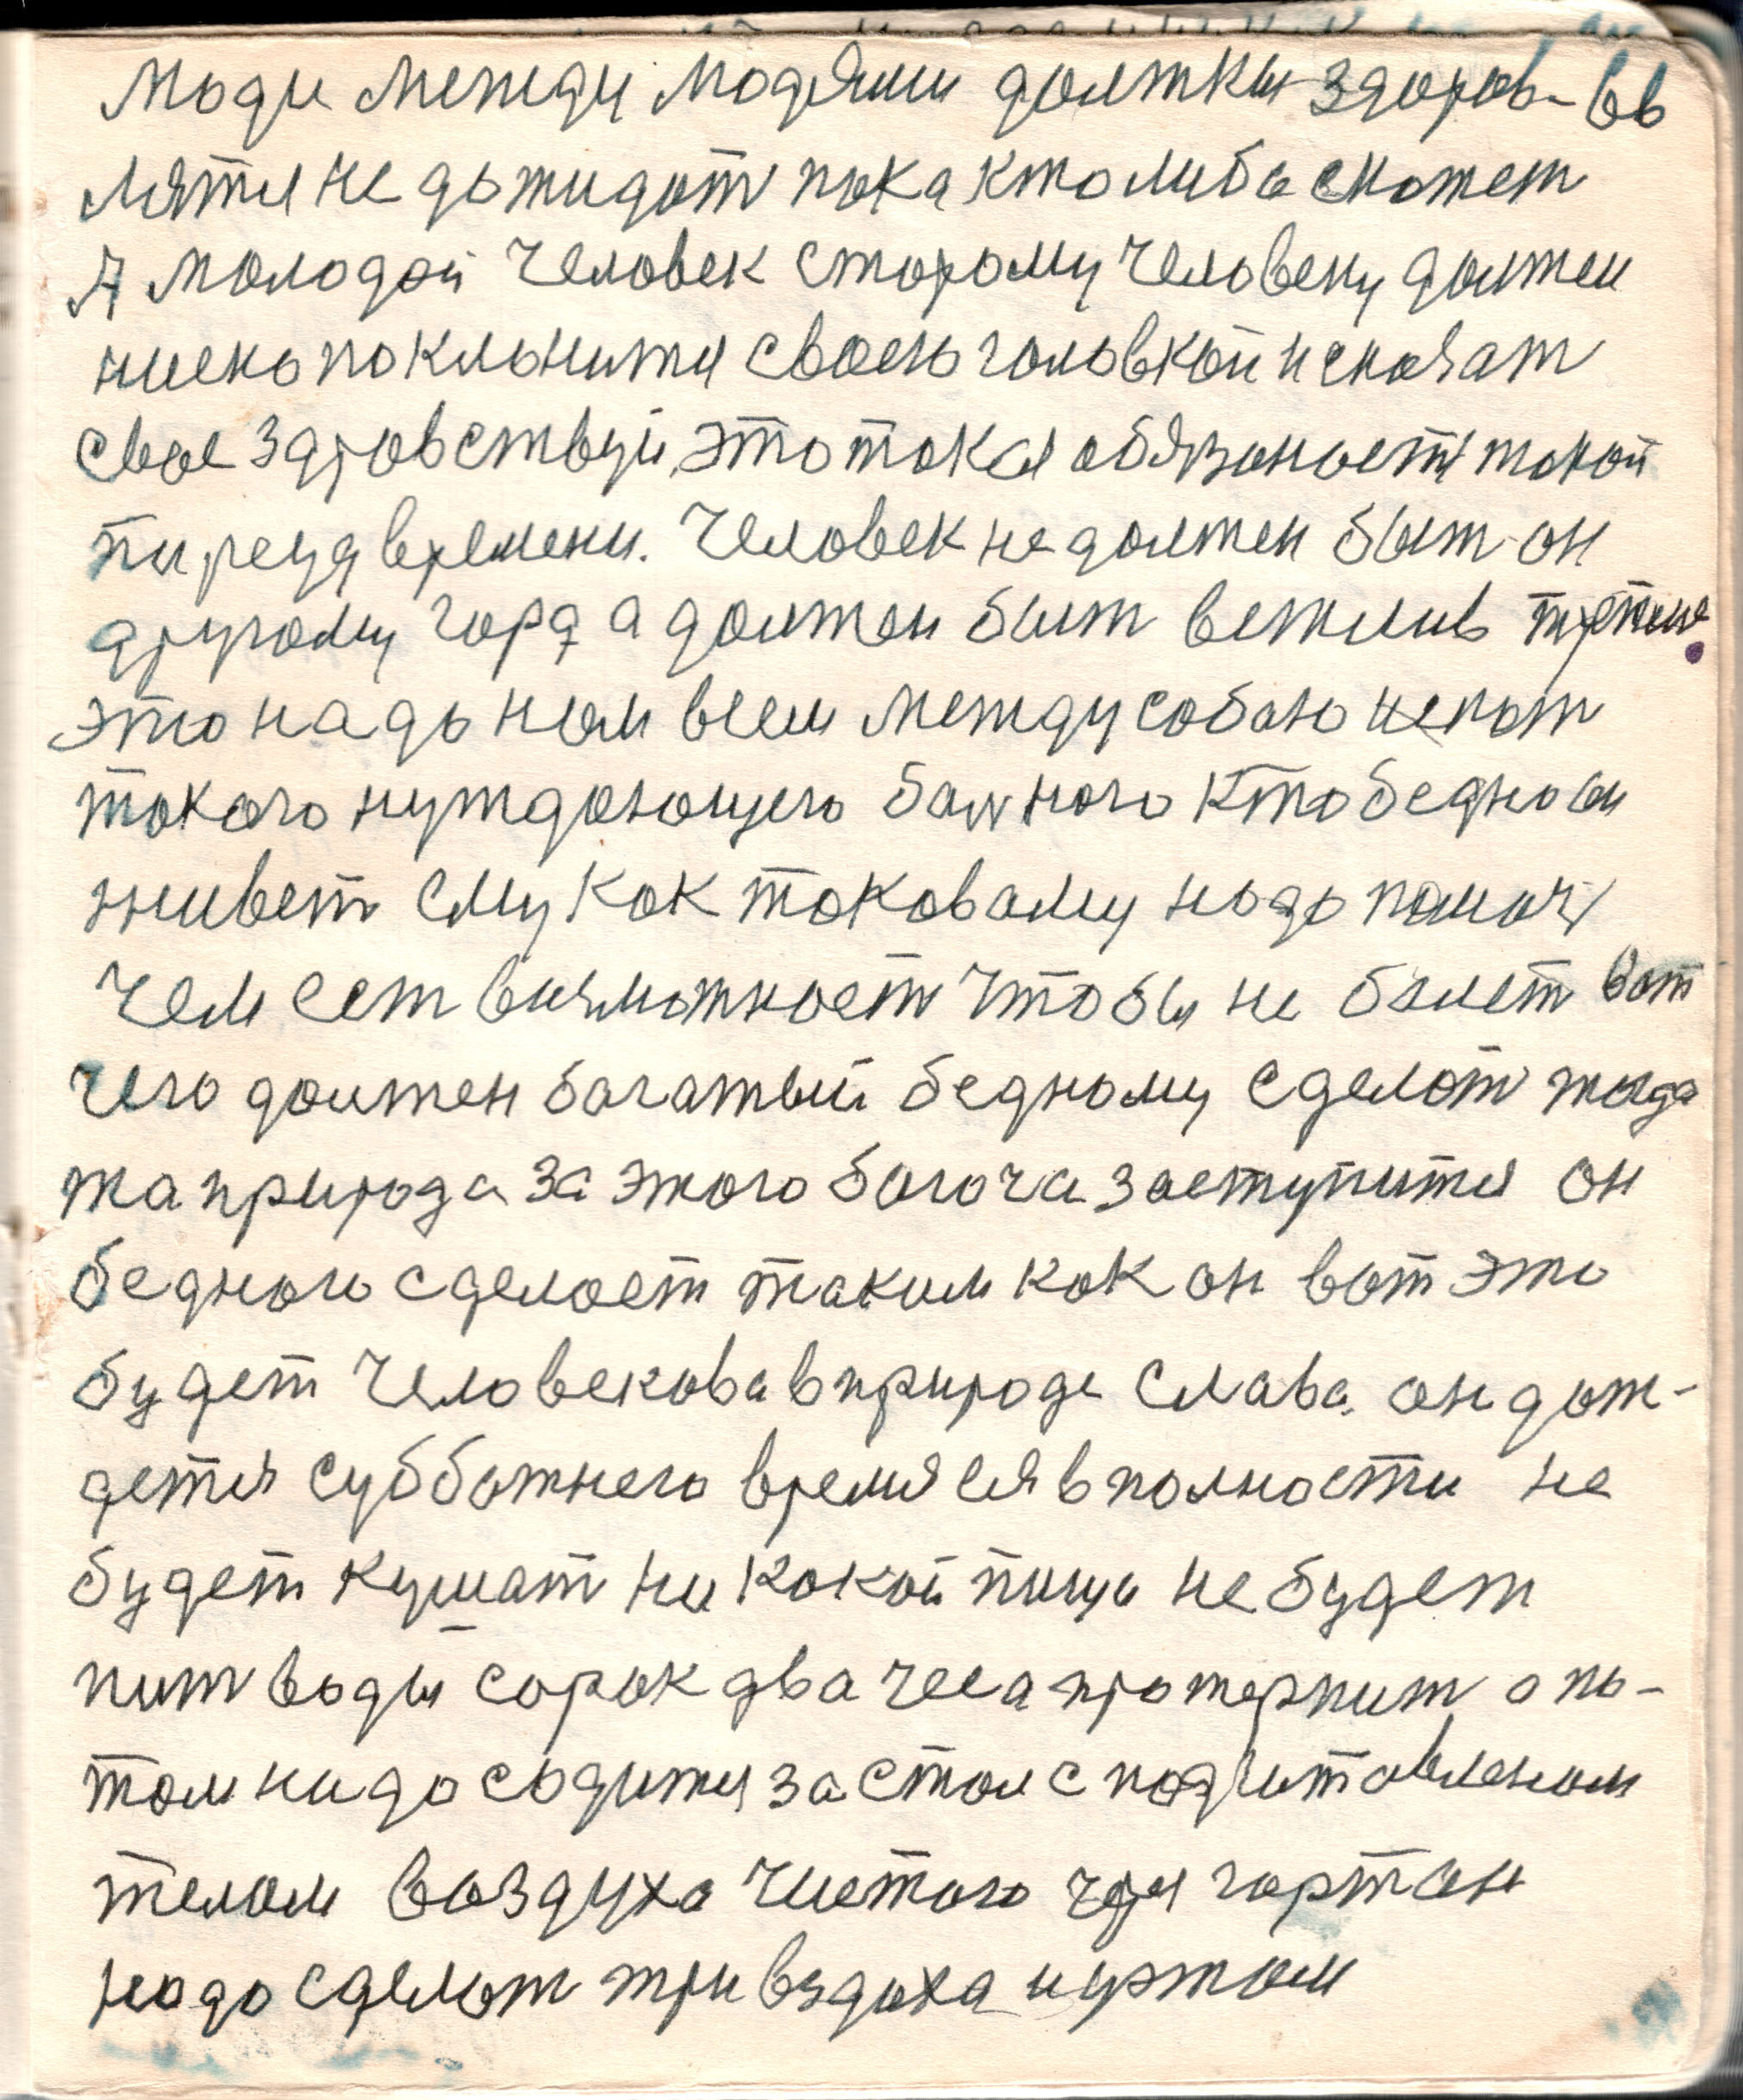 Люди между людями должны здоров- 66
лятся не дожидат пока кто либо скажет
А молодой человек старому человеку должен
ниско поклонится своею головкой и сказат
свое здравствуй, это такая обязаность такой
пиред времени. Человек не должен быт он
другому горд а должен быт вежлив
это надо нам всем между собою искат
такого нуждающего болного кто бедно
живет ему как таковому надо помоч
чем ест возможност чтобы не болет вот
чего должен багатый бедному сделат тагда
та природа за этого богоча заступится он
бедного сделает таким как он вот это
будет человекова в природе слава. он дож-
детя субботнего время ся в полности не
будет кушат ни какой пищи не будет
пит воды сорок два часа протерпит а по-
том надо садится за стол с подгитовленом
телом воздуха чистого чиря гортан
надо сделат три вздоха и уртом